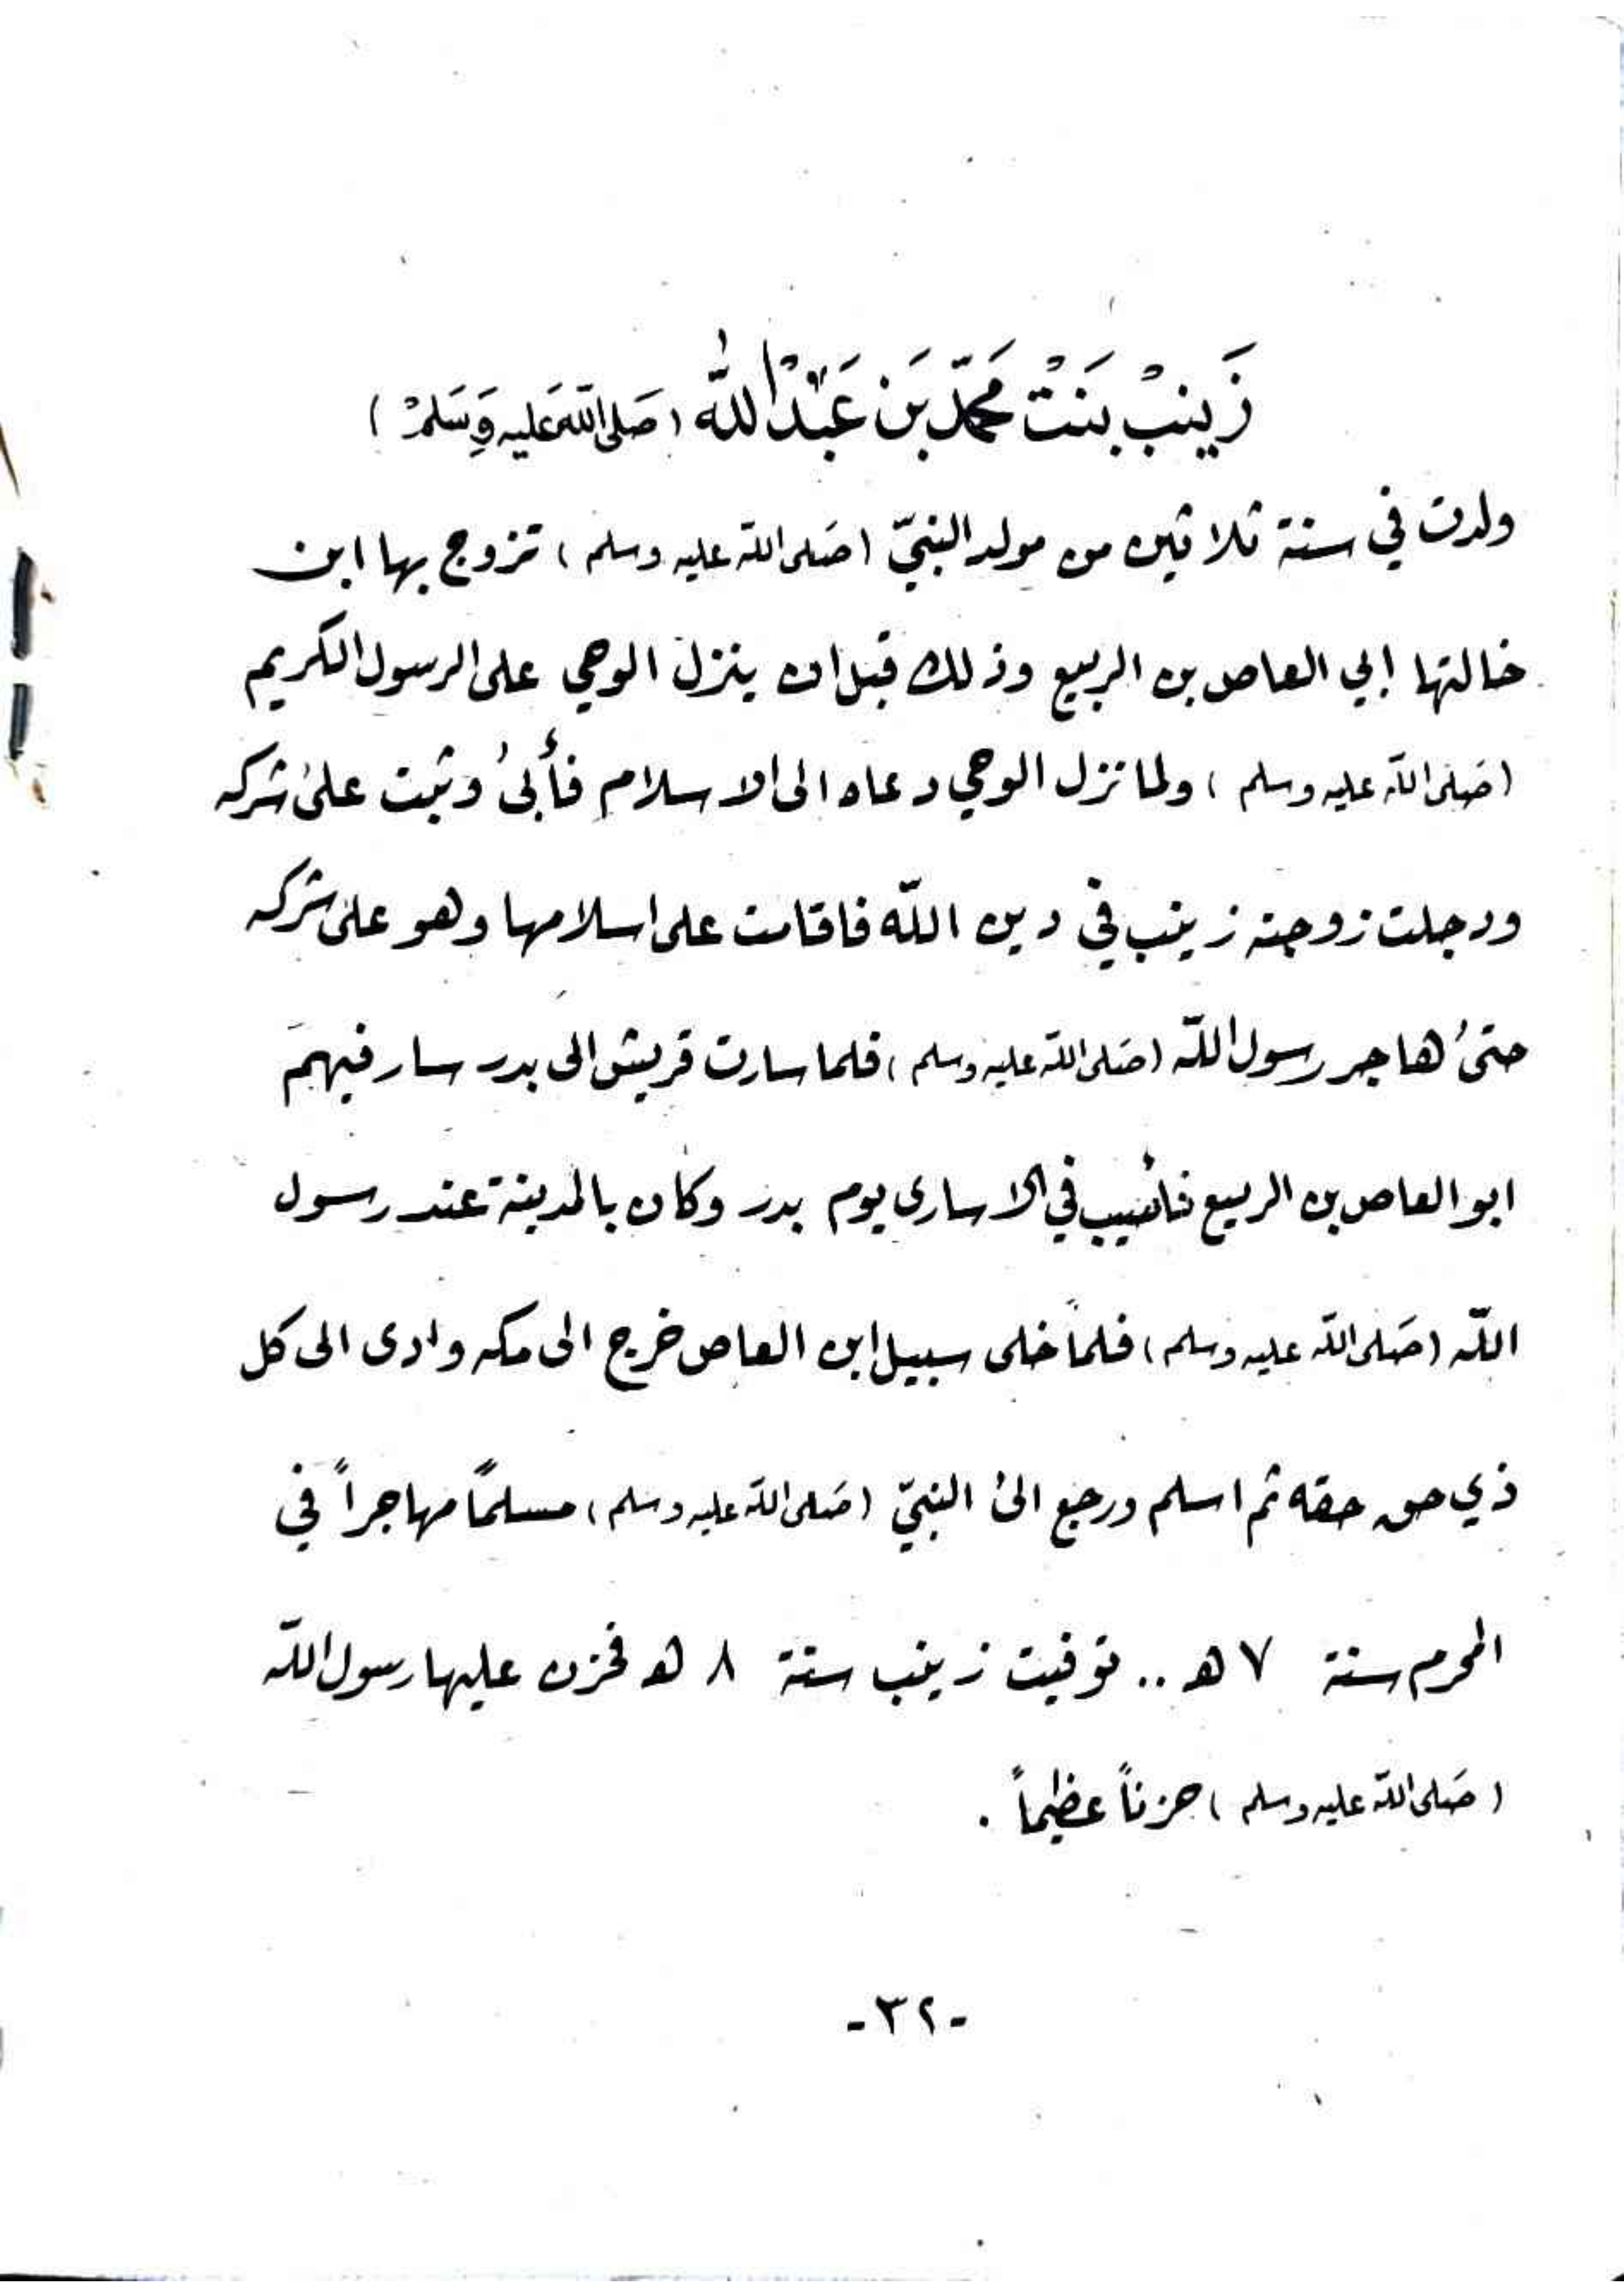 زَينبْ بنَتْ محَمّد بَن عَبْدُ اللّٰه (صَلى اللّه عَليه وَسَلمْ)
ولدت في سنة ثلاثين من مولد النبيّ (صَلى اللّه عليه وسلم) تزوج بها ابن
خالتها إبي العاص بن الربيع وذلك قبل ان ينزل الوحي على الرسول الكريم
(صَلى اللّه عليه وسلم) ولما نزل الوحي دعاه الى الاسلام فأبىٰ وثبت علىٰ شركه
ودجلت زوجته زينب في دين اللّه فاقامت على اسلامها وهو علىٰ شركه
حتىٰ هاجر رسول اللّه (صَلى اللّه عليه وسلم) فلما سارت قريش الى بدر سار فيهمَ
ابو العاص بن الربيع فأصيب في الاسارى يوم بدر وكان بالمدينة عند رسول
اللّه (صَلى اللّه عليه وسلم) فلما خلى سبيل ابن العاص خرج الى مكه وادى الى كل
ذي حق حقه ثم اسلم ورجع الىٰ النبيّ (صَلى اللّه عليه وسلم) مسلمًا مهاجراً في
المحرم سنة ٧ هـ .. توفيت زينب سنة ٨ هـ فحزن عليها رسول اللّه
(صَلى اللّه عليه وسلم) حزناً عظيماً .
-٣٢-